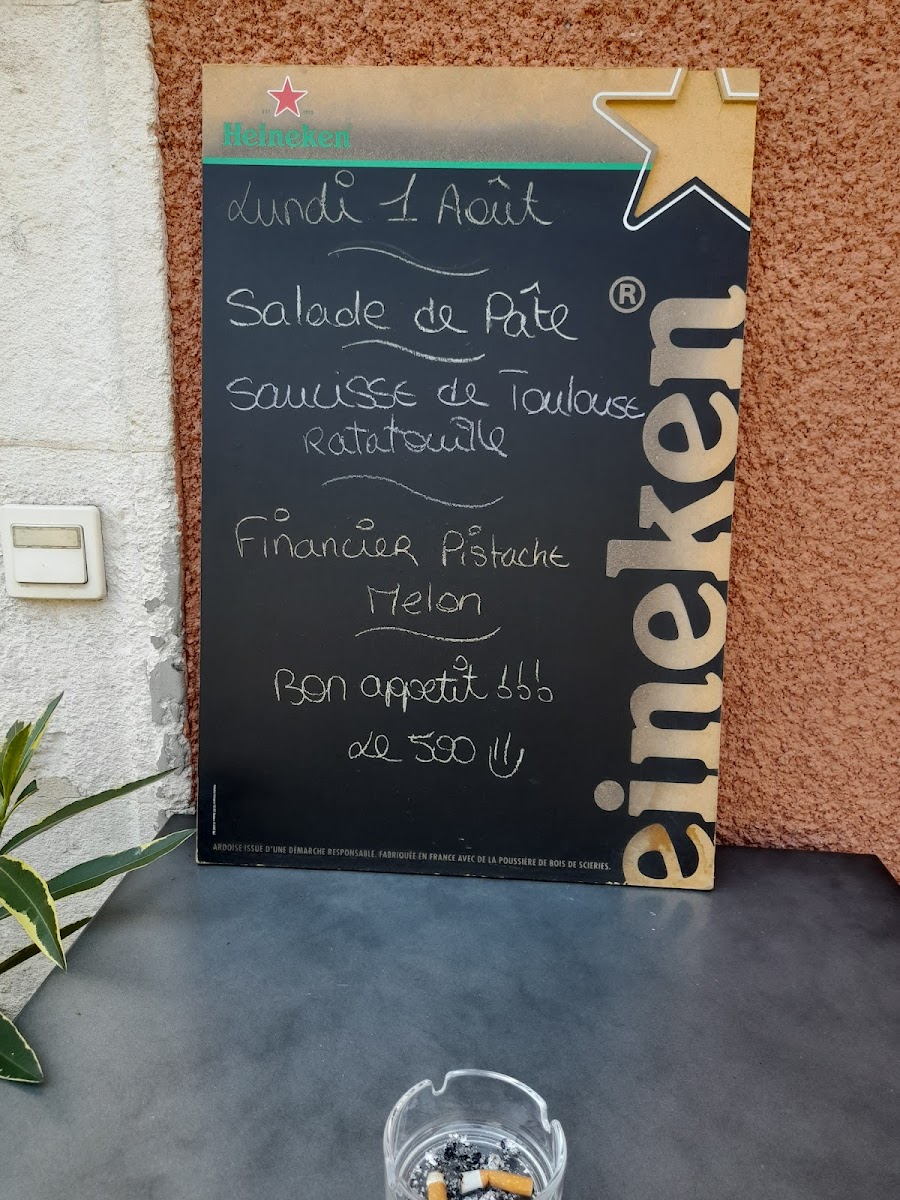 Heineken
Lundi 1 Août
Salade de Pâte
Saucisse de Toulouse
Ratatouille
Financier Pistache
Melon
Bon appetit !!!
Le 590
ARDOISE ISSUE D'UNE DÉMARCHE RESPONSABLE. FABRIQUÉE EN FRANCE AVEC DE LA POUSSIÈRE DE BOIS DE SCIERIES.
eineken®